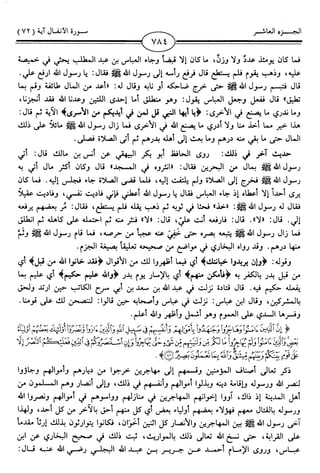 الجـزء العاشـر
٧٨٤
سـورة الأنفـال آية (٧٢)
فما كان يومئذ عدد ولا وزن، ما كان إلا قبضاً وجاء العباس بن عبد المطلب يحثي في خميصة
عليه، وذهب يقوم فلم يستطع قال فرفع رأسه إلى رسول الله ﷺ فقال: يا رسول الله ارفع علي.
قال فتبسم رسول الله ﷺ حتى خرج ضاحكه أو نابه وقال له: «أعد من المال طائفة وقم بما
تطيق» قال ففعل وجعل العباس يقول: وهو منطلق أما إحدى اللتين وعدنا الله فقد أنجزنا،
وما ندري ما يصنع في الأخرى: ﴿يا أيها النبي قل لمن في أيديكم من الأسرى﴾ الآية ثم قال:
هذا خير مما أخذ منا ولا أدري ما يصنع الله في الأخرى فما زال رسول الله ﷺ ماثلاً على ذلك
المال حتى ما بقي منه درهم وما بعث إلى أهله بدرهم ثم أتى الصلاة فصلى.
حديث آخر في ذلك: روى الحافظ أبو بكر البيهقي عن أنس بن مالك قال: أتي
رسول الله ﷺ بمال من البحرين فقال: «انثروه في المسجد» قال وكان أكثر مال أتي به
رسول الله ﷺ فخرج إلى الصلاة ولم يلتفت إليه، فلما قضى الصلاة جاء فجلس إليه، فما كان
يرى أحداً إلا أعطاه إذ جاء العباس فقال يا رسول الله أعطني فإني فاديت نفسي، وفاديت عقيلاً
فقال له رسول الله ﷺ: «خذ» فحثا في ثوبه ثم ذهب يقله فلم يستطع، فقال: مُر بعضهم يرفعه
إلي. قال: «لا». قال: فارفعه أنت عليّ، قال: «لا» فنثر منه ثم احتمله على كاهله ثم انطلق
فما زال رسول الله ﷺ يتبعه بصره حتى خَفِيَ عنه عجباً من حرصه، فما قام رسول الله ﷺ وثَمَّ
منها درهم. وقد رواه البخاري في مواضع من صحيحه تعليقاً بصيغة الجزم.
وقوله: ﴿وإن يريدوا خيانتك﴾ أي فيما أظهروا لك من الأقوال ﴿فقد خانوا الله من قبل﴾ أي
من قبل بدر بالكفر به ﴿فأمكن منهم﴾ أي بالإسار يوم بدر ﴿والله عليم حكيم﴾ أي عليم بما
يفعله حكيم فيه. قال قتادة نزلت في عبد الله بن سعد بن أبي سرح الكاتب حين ارتد ولحق
بالمشركين، وقال ابن عباس: نزلت في عباس وأصحابه حين قالوا: لننصحن لك على قومنا.
وفسرها السدي على العموم وهو أشمل وأظهر والله أعلم.
ذكر تعالى أصناف المؤمنين وقسمهم إلى مهاجرين خرجوا من ديارهم وأموالهم وجاؤوا
لنصر الله ورسوله وإقامة دينه وبذلوا أموالهم وأنفسهم في ذلك، وإلى أنصار وهم المسلمون من
أهل المدينة إذ ذاك، آووا إخوانهم المهاجرين في منازلهم وواسوهم في أموالهم ونصروا الله
ورسوله بالقتال معهم فهؤلاء بعضهم أولياء بعض أي كل منهم أحق بالآخر من كل أحد، ولهذا
آخى رسول الله ﷺ بين المهاجرين والأنصار كل اثنين أخوان، فكانوا يتوارثون بذلك إرثاً مقدماً
على القرابة، حتى نسخ الله تعالى ذلك بالمواريث، ثبت ذلك في صحيح البخاري عن ابن
عباس، وروى الإمـام أحمـد عـن جـريـر بـن عبـد الله البجلـي رضـي الله عنـه قـال: